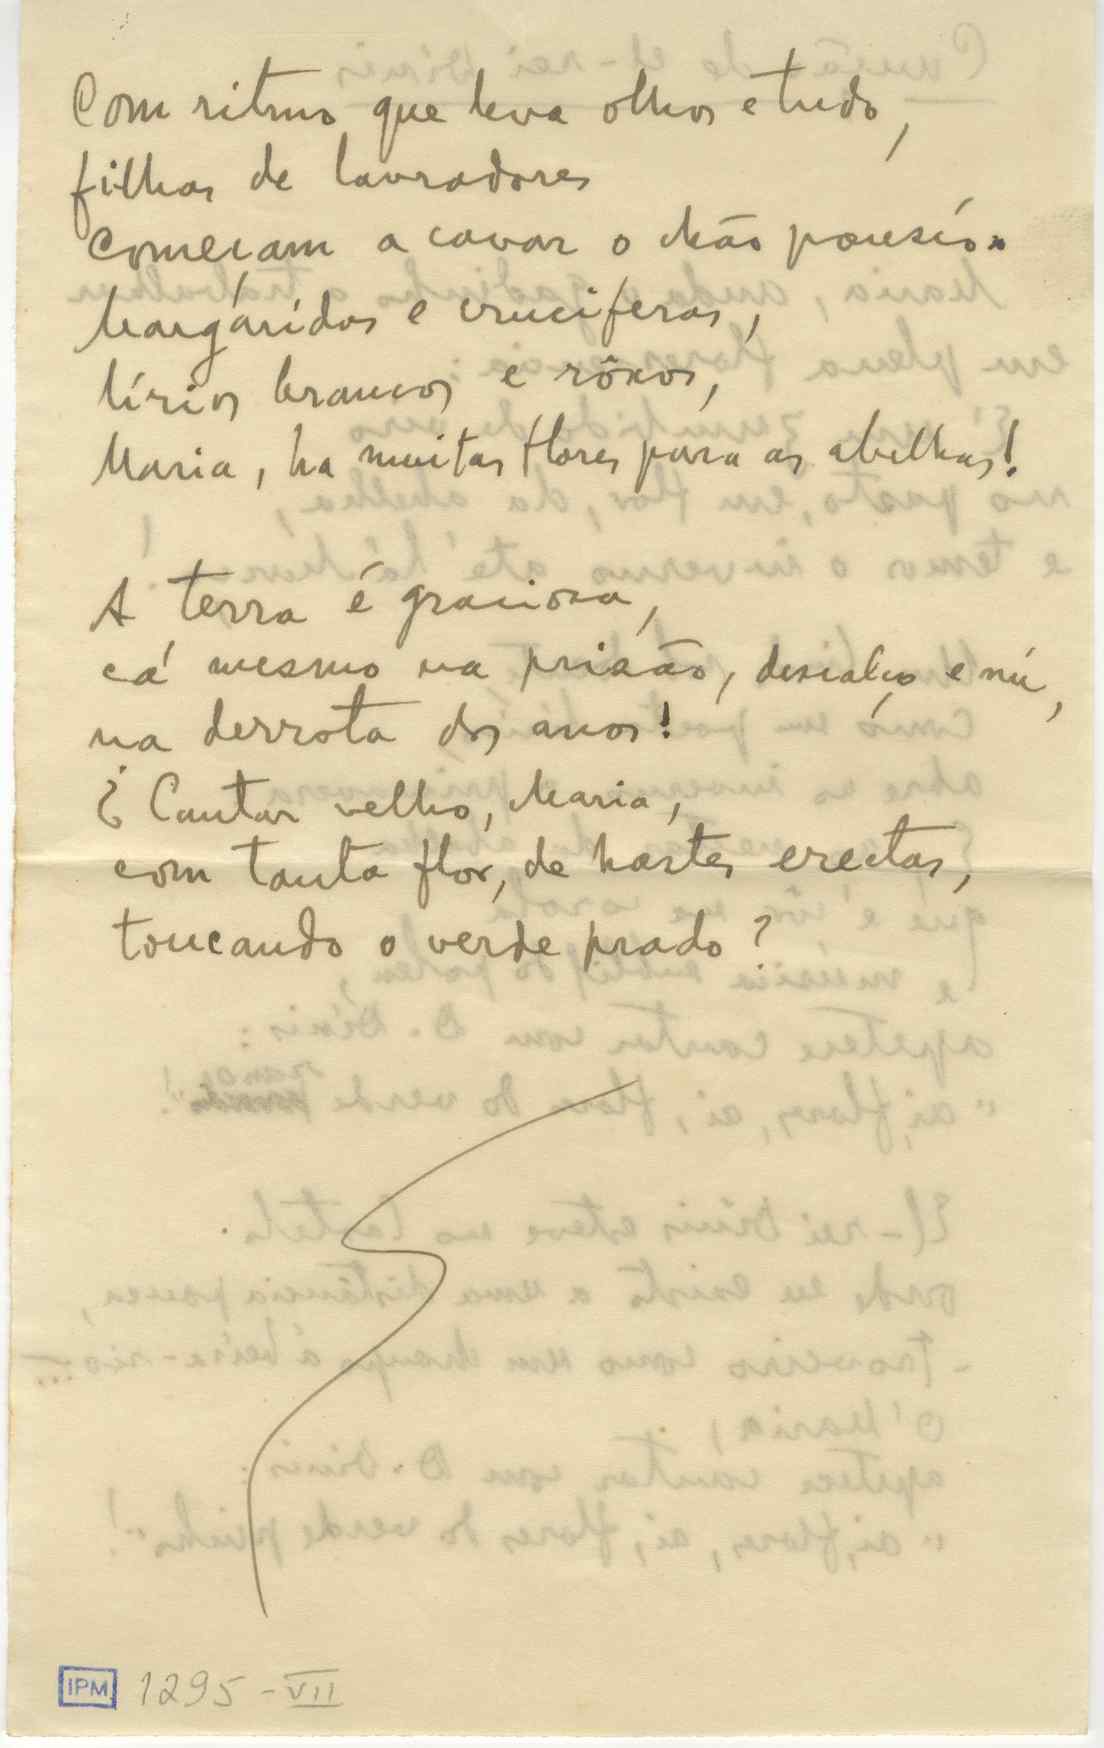 Com ritmo que leva olhos e tudo,
filhas de lavradores
começam a cavar o chão pousío.
Margáridas e cruciferas,
lírios brancos e rôxos,
Maria, ha muitas flores para as abelhas!
A terra é graciosa,
cá mesmo na prisão, descalço e nú,
na derrota dos anos!
¿ Cantar velho, Maria,
com tanta flor, de hastes erectas,
toucando o verde prado?
IPM 1295-VII